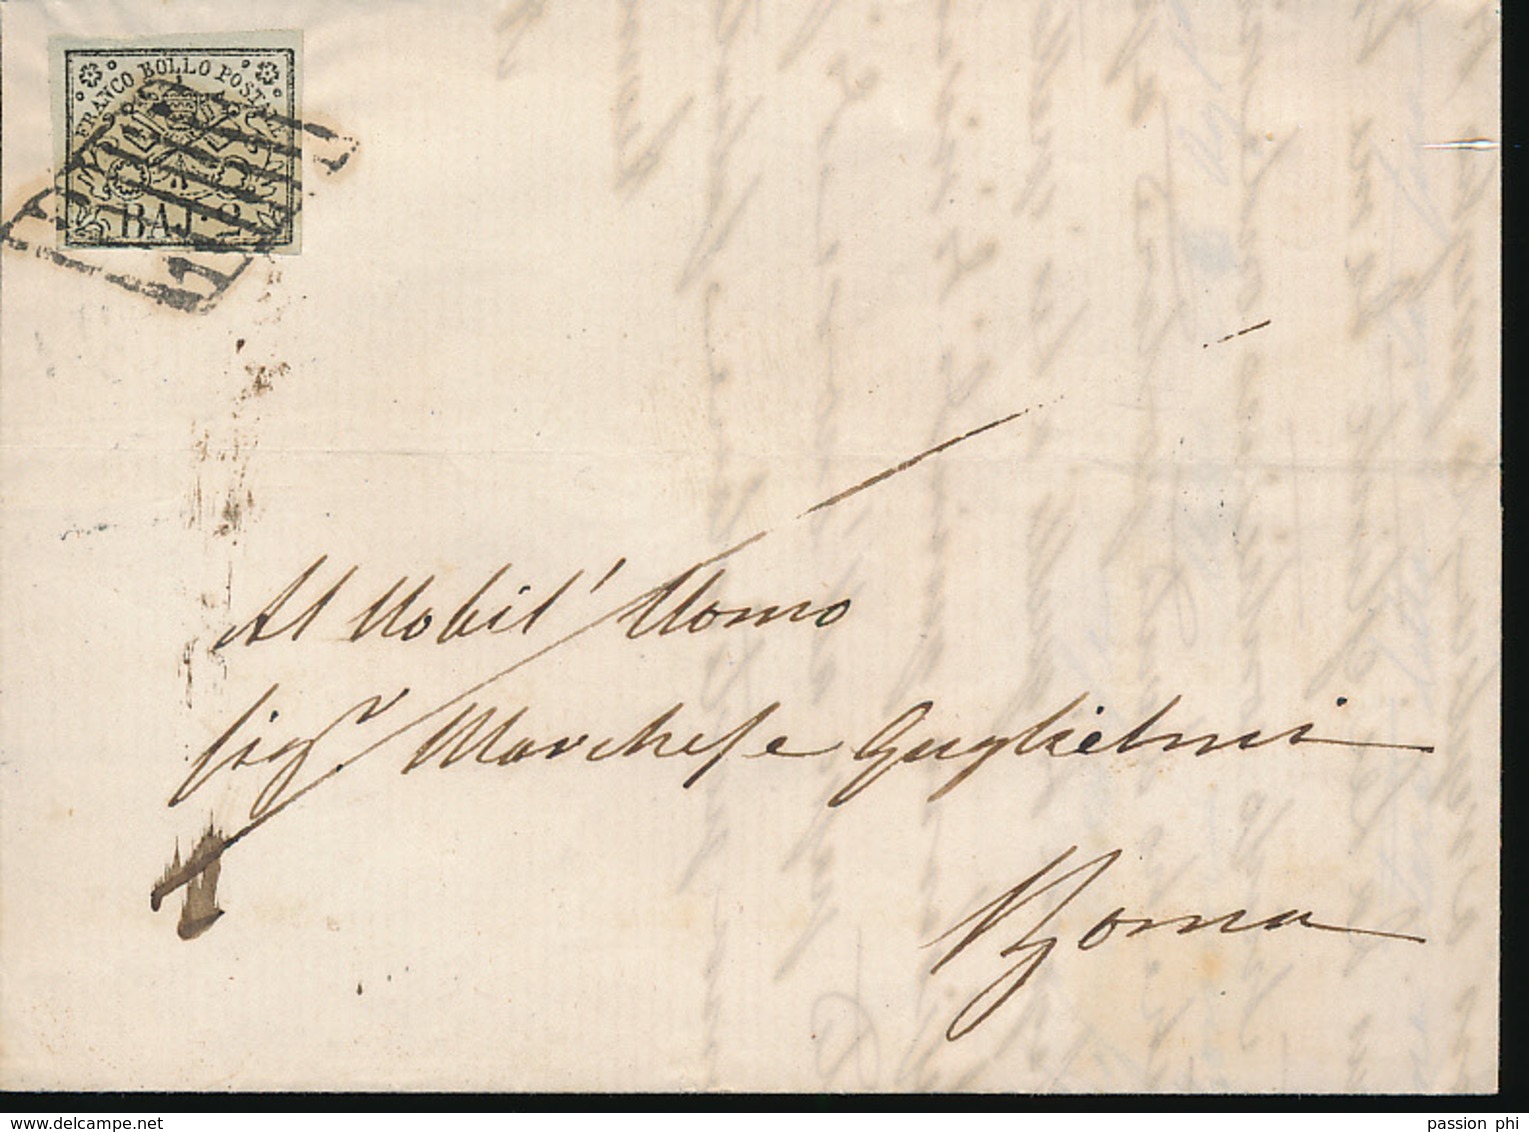 FRANCO BOLLO POSTALE
BAJ. 2
Al Nobil' Uomo
Sigr Marchese Guglielmi
Roma
passion phi